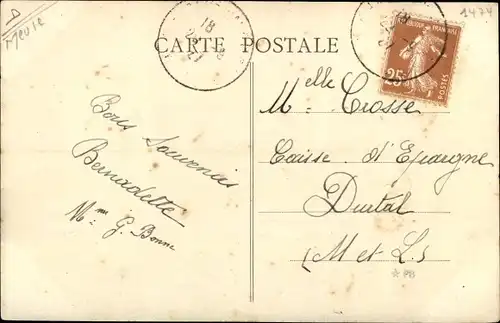 Meuse
1474
CARTE POSTALE
18
RÉPUBLIQUE FRANÇAISE
25c
POSTES
Melle Crosse
Caisse d'Epargne
Durtal
(M et L)
Bons Souvenirs
Bernadette
Mme G. Bonne